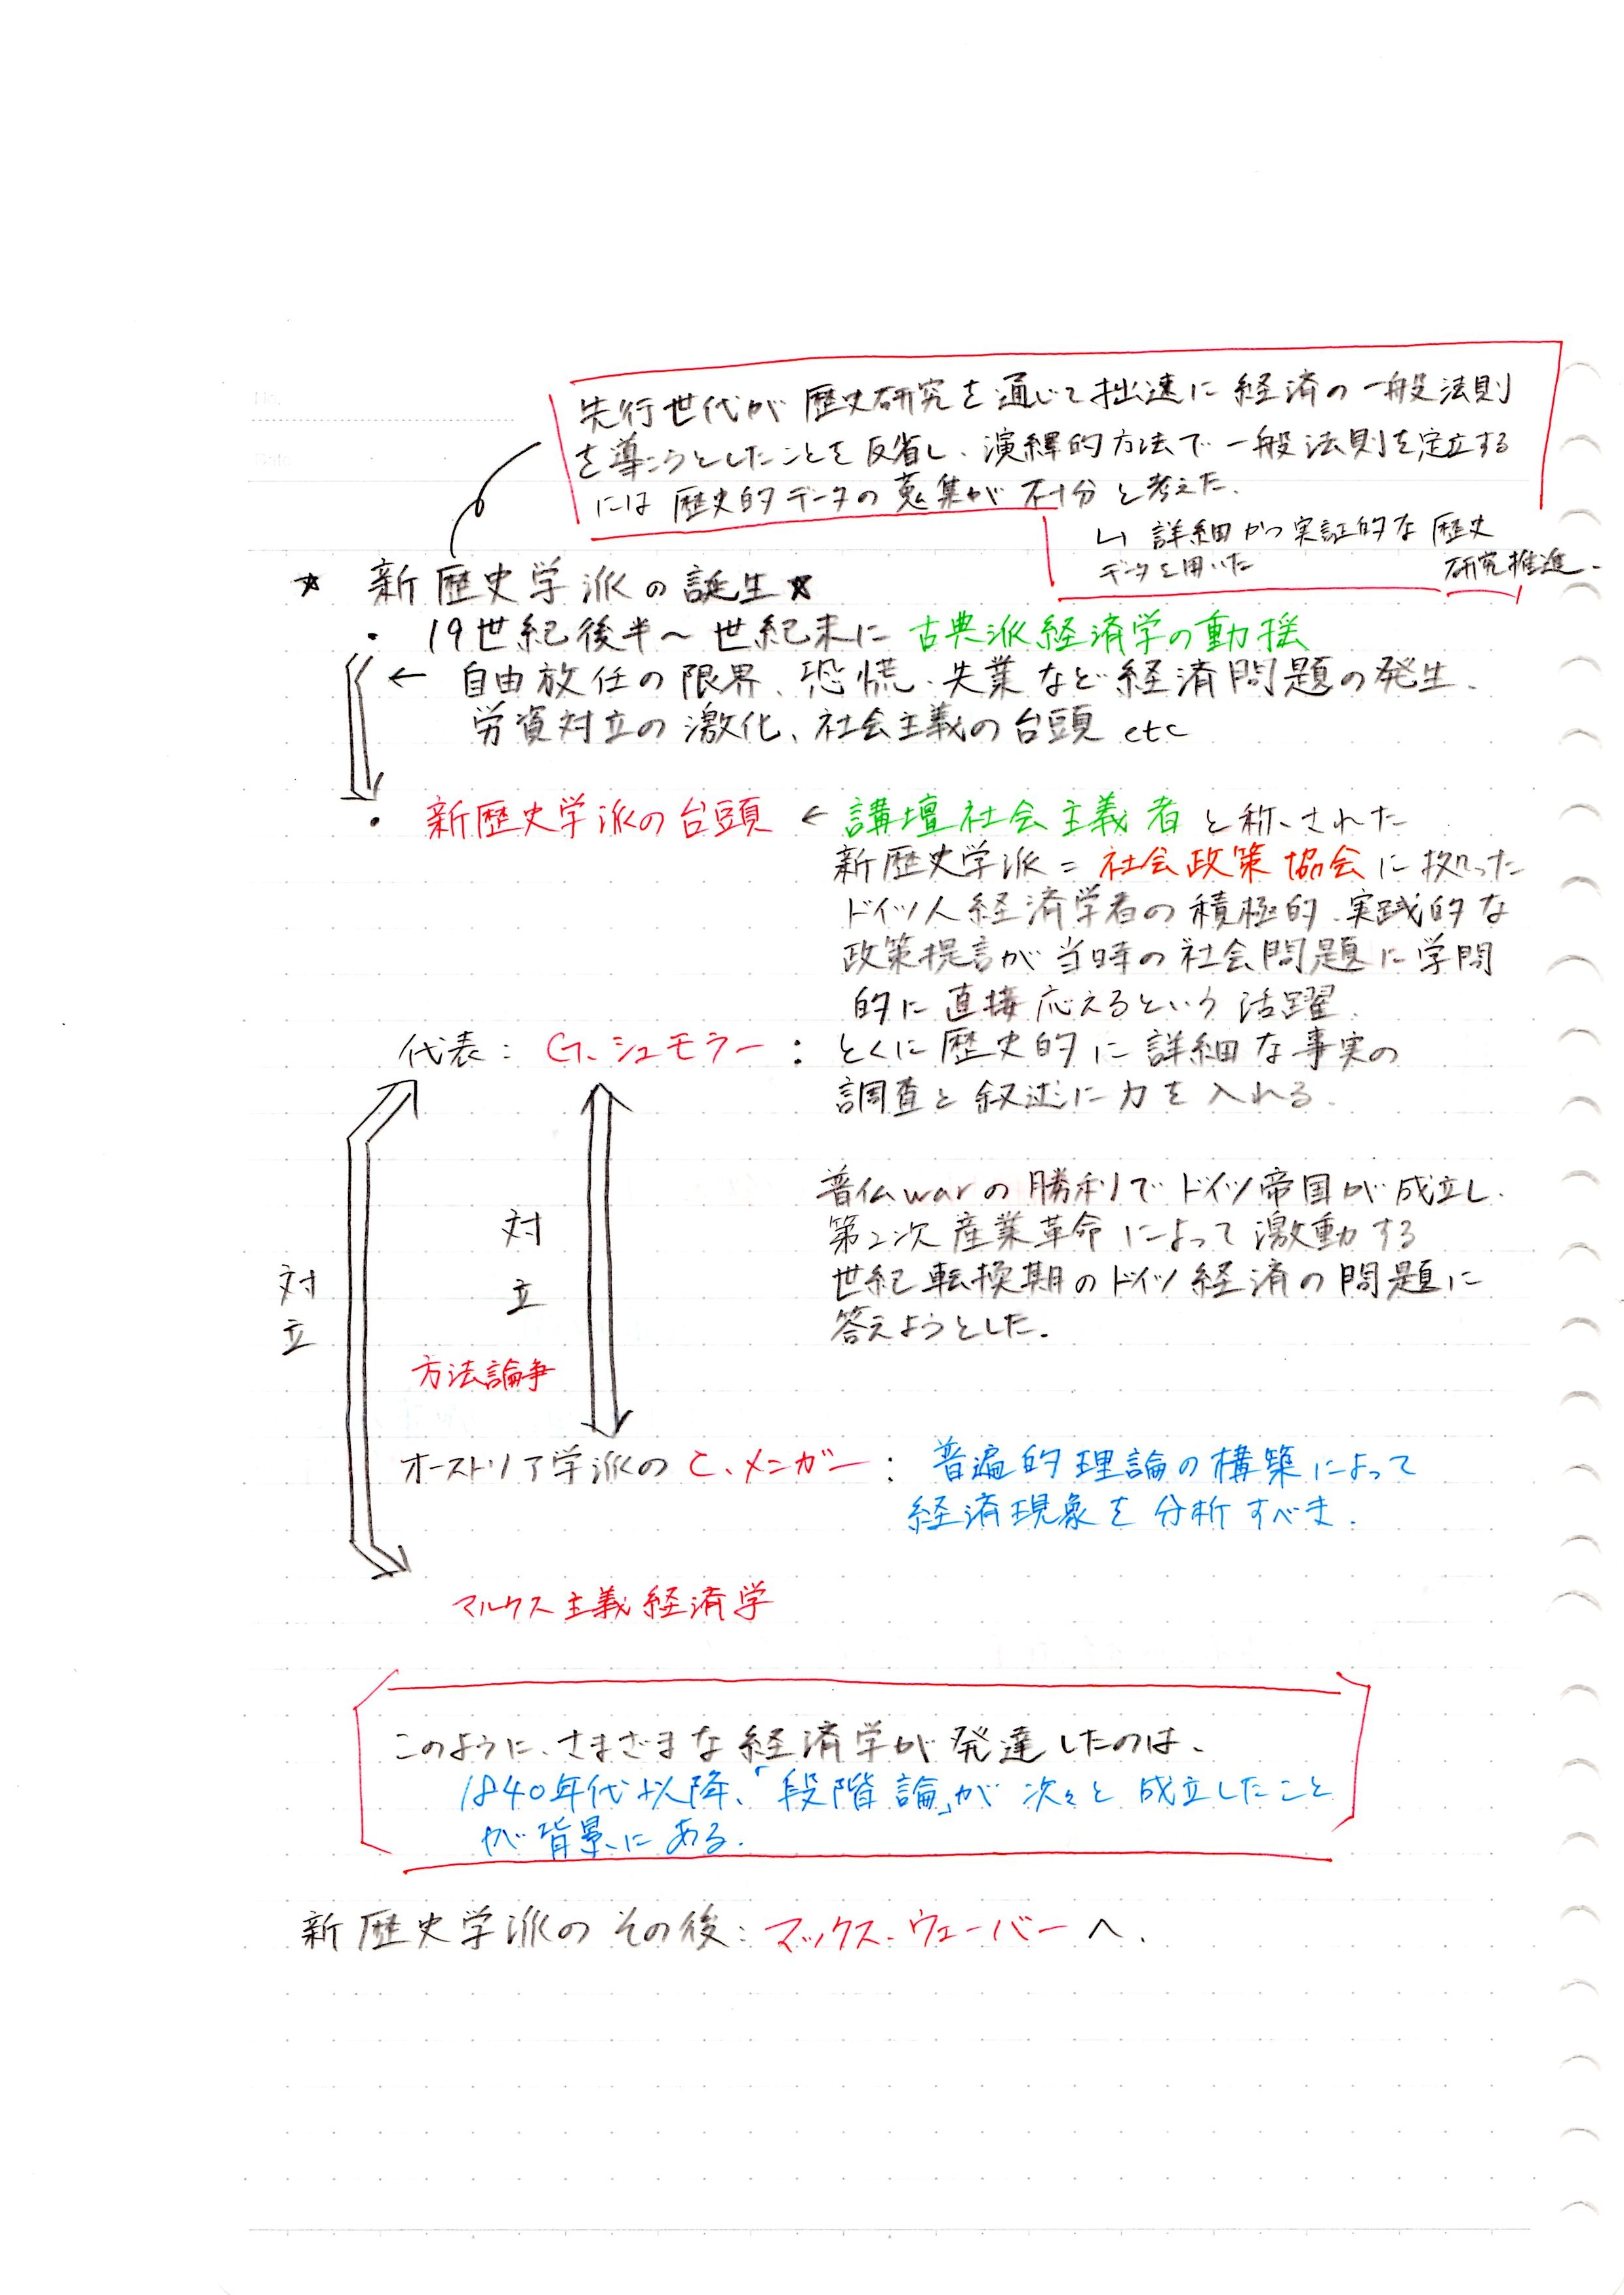 先行世代が歴史研究を通じて拙速に経済の一般法則
を導こうとしたことを反省し、演繹的方法で一般法則を定立する
には歴史的データの蒐集が不十分と考えた.
↳ 詳細かつ実証的な歴史
データを用いた 研究推進.
☆ 新歴史学派の誕生☆
・ 19世紀後半〜世紀末に 古典派経済学の動揺
← 自由放任の限界、恐慌、失業など経済問題の発生、
労資対立の激化、社会主義の台頭 etc
・ 新歴史学派の台頭 ← 講壇社会主義者 と称された
新歴史学派 = 社会政策協会に拠った
ドイツ人経済学者の積極的、実践的な
政策提言が当時の社会問題に学問
的に直接応えるという活躍.
代表: G、シュモラー : とくに歴史的に詳細な事実の
調査と叙述に力を入れる.
普仏warの勝利でドイツ帝国が成立し、
第2次産業革命によって激動する
世紀転換期のドイツ経済の問題に
答えようとした.
対立
対立
方法論争
オーストリア学派の C、メンガー : 普遍的理論の構築によって
経済現象を分析すべき.
マルクス主義経済学
このように、さまざまな経済学が発達したのは、
1840年代以降、「段階論」が次々と成立したこと
が背景にある.
新歴史学派のその後: マックス・ウェーバーへ.